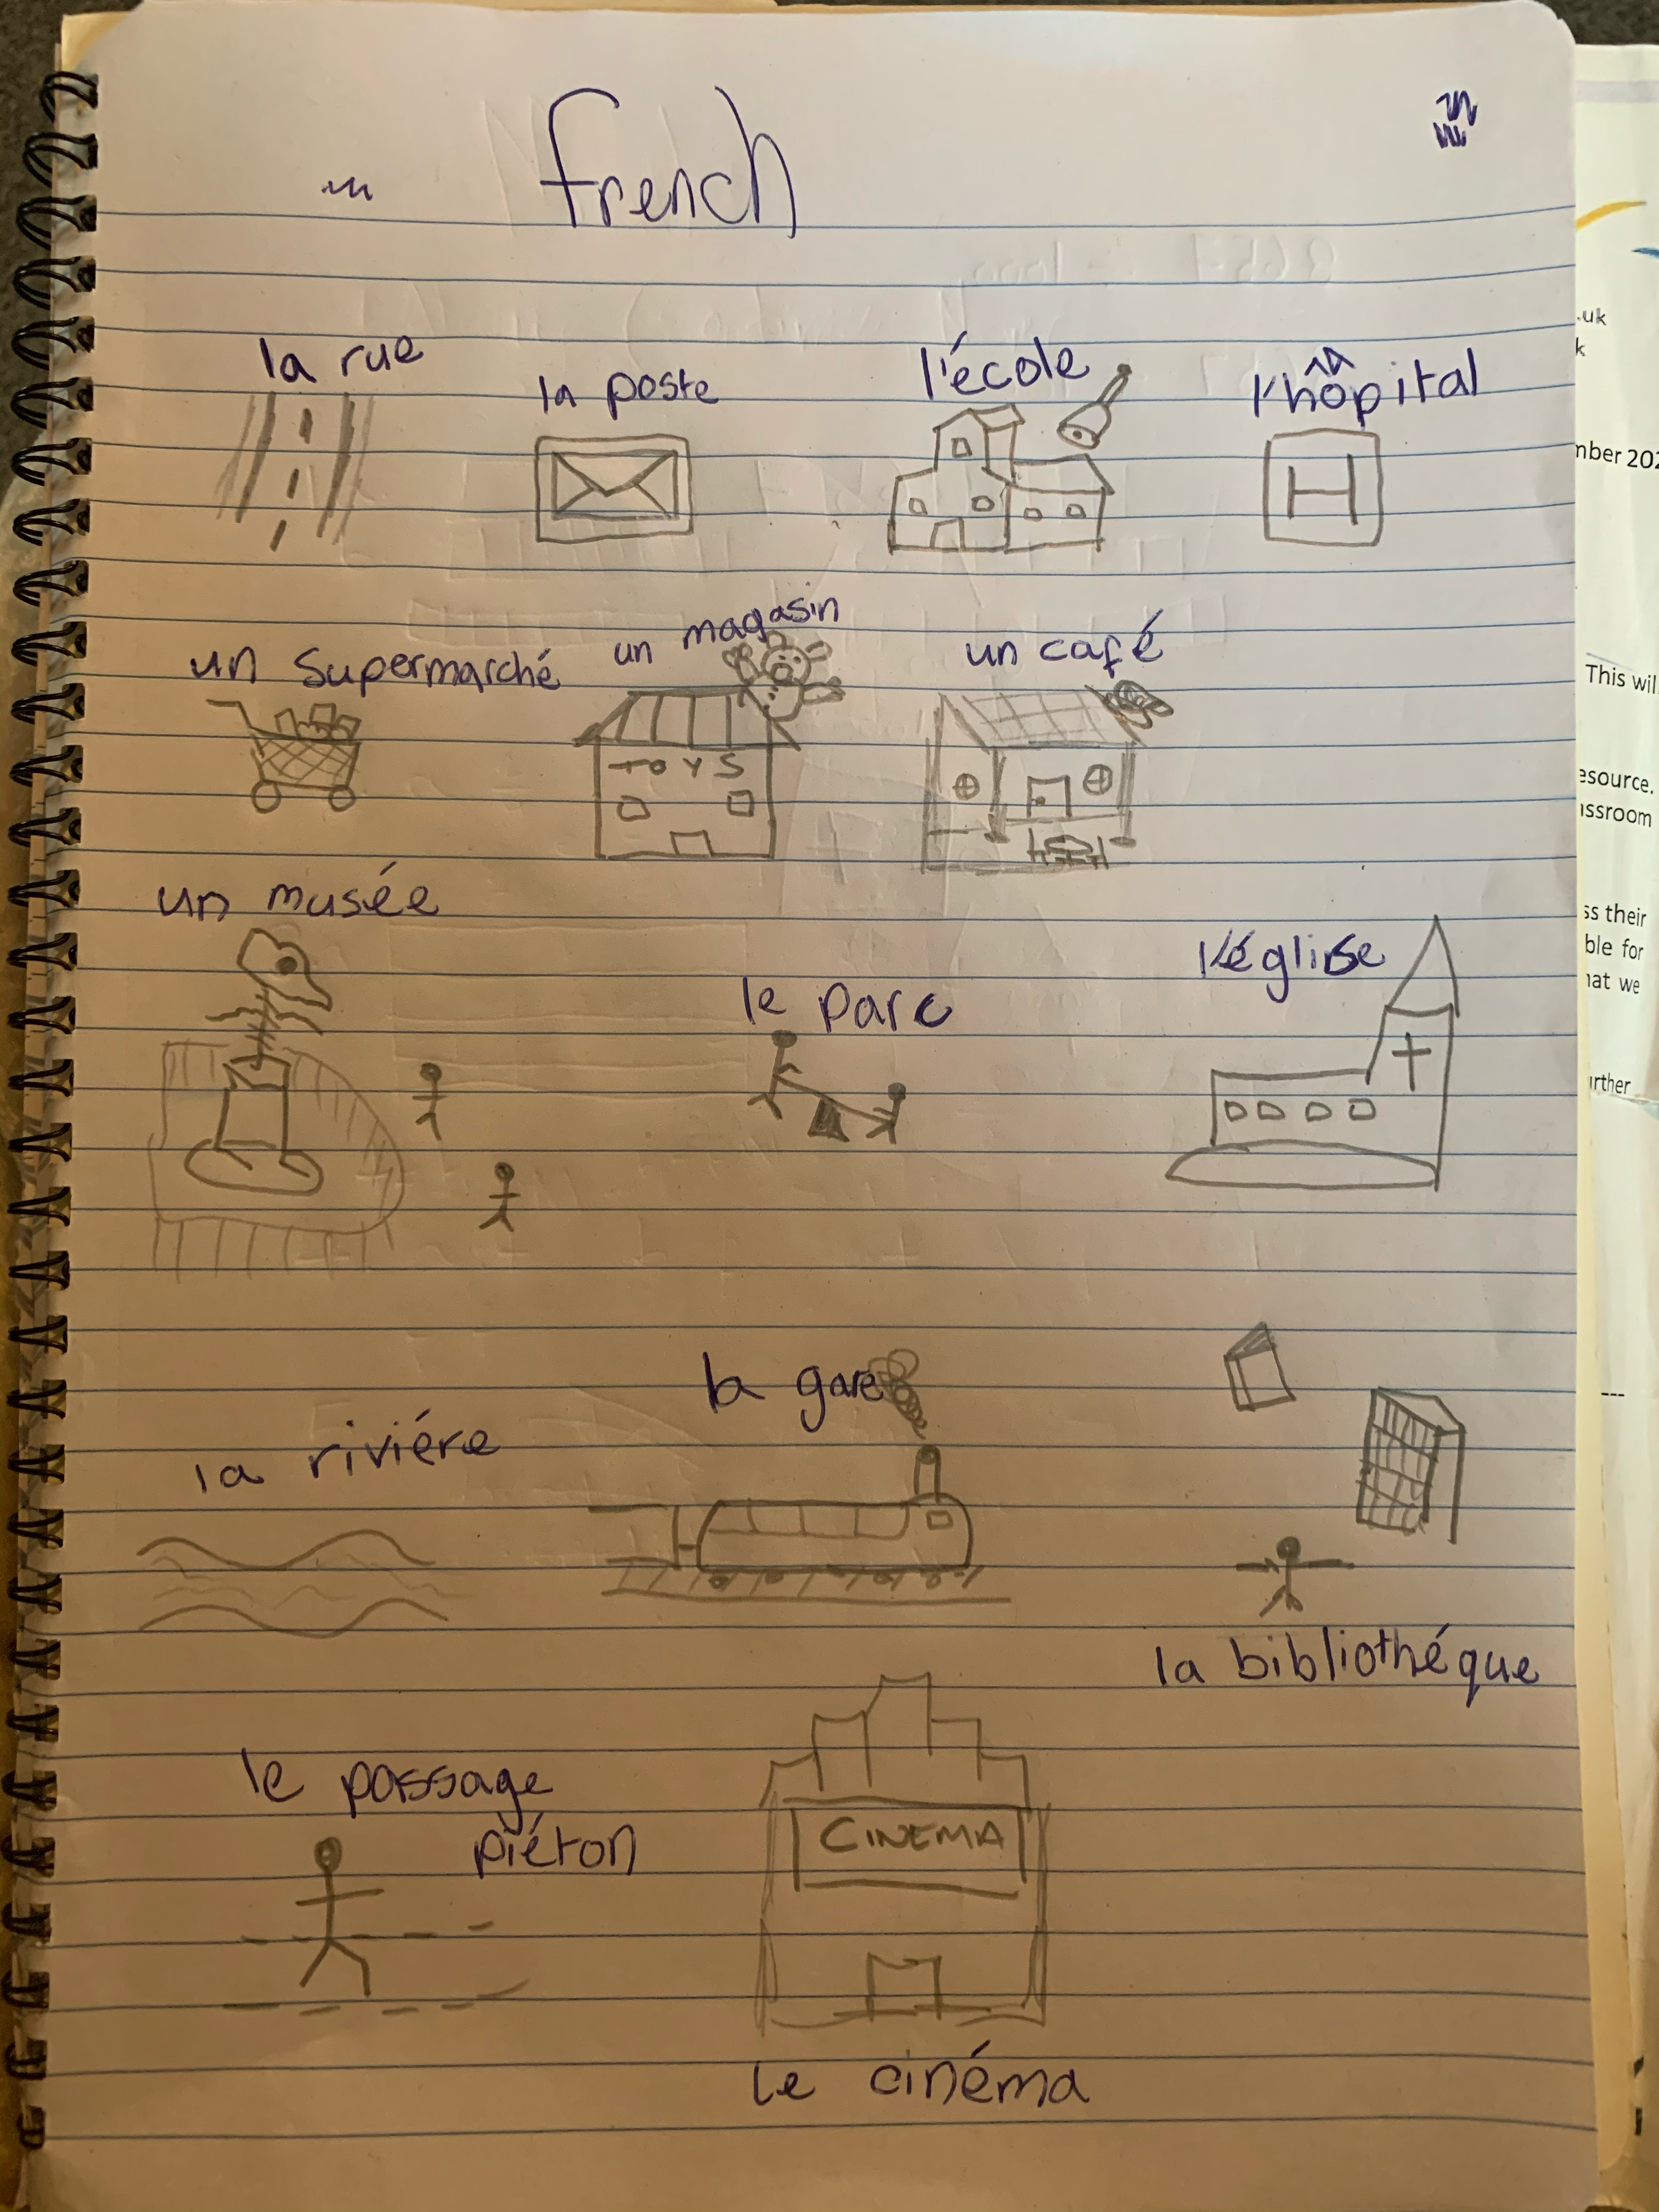 French
la rue
la poste
l'école
l'hôpital
H
un supermarché
un magasin
un café
TOYS
un musée
le parc
l'église
la gare
la riviére
la bibliothéque
le passage
piéton
CINEMA
le cinéma
.uk
k
mber 202
This wil
esource.
assroom
ss their
ble for
hat we
urther
---